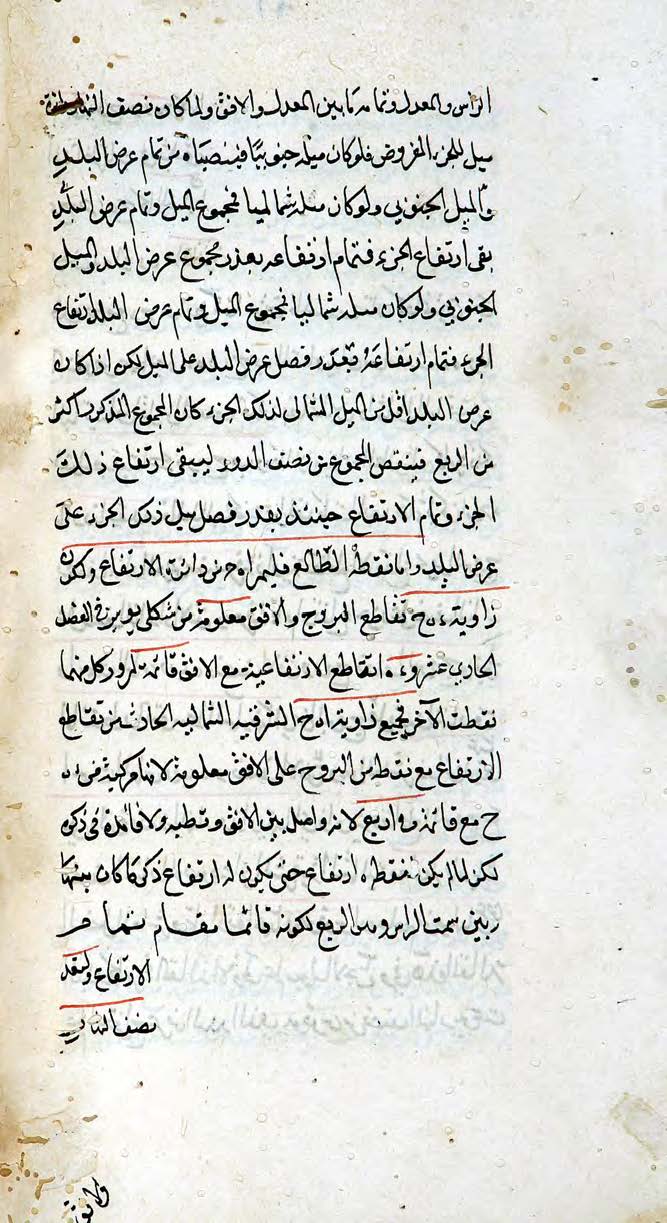 الراس والمعدل وتمامه مابين المعدل والافق ولما كان نصف النهار
ميل للجزء المفروض فلو كان ميله جنوبيا فينقصناه من تمام عرض البلد
والميل الجنوبي ولو كان ميله شماليا فمجموع الميل وتمام عرض البلد
بقى ارتفاع الجزء فتمام ارتفاعه بقدر مجموع عرض البلد والميل
الجنوبي ولو كان ميله شماليا فمجموع الميل وتمام عرض البلد ارتفاع
الجزء فتمام ارتفاعه بقدر فصل عرض البلد على الميل لكن اذا كان
عرض البلد اقل من الميل الشمالى لذلك الجزء كان المجموع المذكور اكثر
من الربع فينقص المجموع من نصف الدور ليبقى ارتفاع ذلك
الجزء وتمام الارتفاع حينئذ بقدر فصل ميل ذلك الجزء على
عرض البلد واما نقطة الطالع فليمر اه ح من دائرة الارتفاع ولكون
زاوية ء ه ح تقاطع البروج والافق معلومة من شكلى يو يز فى الفصل
الحادى عشر و ء ه ا تقاطع الارتفاعية مع الافق قائمة لمرور كل منهما
بقطب الآخر فجميع زاوية ا ه ح الشرقية الشمالية الحادثة من تقاطع
الارتفاع مع نقطة من البروج على الافق معلومة لانها مركبة من ء ه
ح مع قائمة و ا ربع لانه واصل بين الافق وقطبه ولا فائدة فى ذكره
لكن لما لم يكن لنقطة ه ارتفاع حتى يكون له ارتفاع ذكر ما كان بينها
وبين سمت الراس وهو الربع لكونه قائما مقام تمام
الارتفاع وليعد
نصف النهار